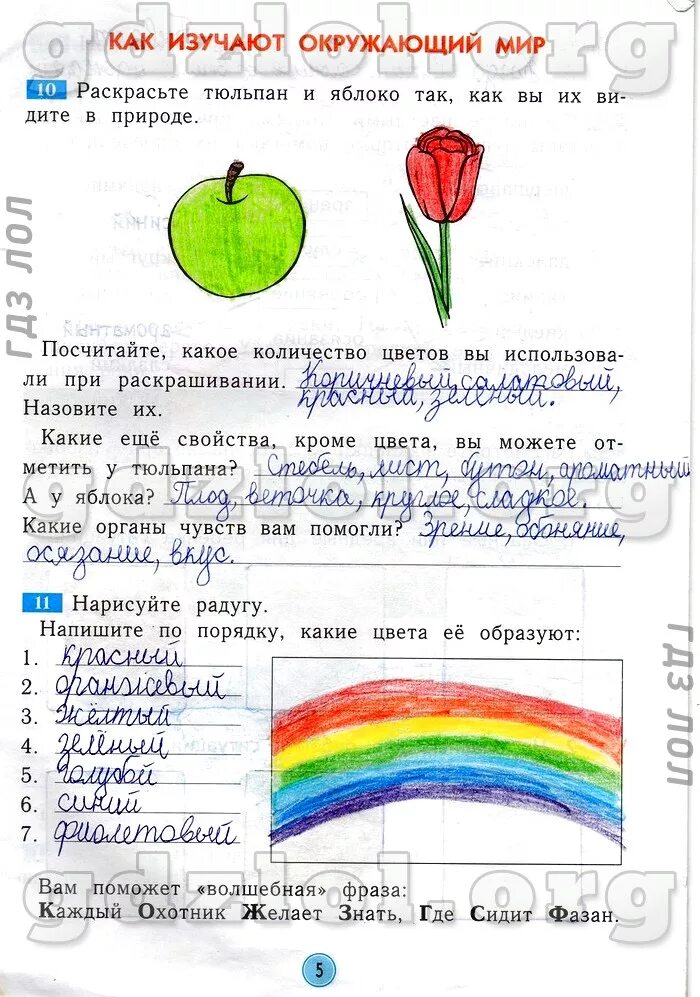 gdzlol.org
КАК ИЗУЧАЮТ ОКРУЖАЮЩИЙ МИР
10 Раскрасьте тюльпан и яблоко так, как вы их ви-
дите в природе.
гдз лол
Посчитайте, какое количество цветов вы использова-
ли при раскрашивании. Коричневый, салатовый,
Назовите их. красный, зелёный.
Какие ещё свойства, кроме цвета, вы можете от-
метить у тюльпана? Стебель, лист, бутон, ароматный
gdzlol.org
А у яблока? Плод, веточка, круглое, сладкое.
Какие органы чувств вам помогли? Зрение, обоняние,
осязание, вкус.
11 Нарисуйте радугу.
Напишите по порядку, какие цвета её образуют:
1. красный
2. оранжевый
3. жёлтый
4. зелёный
5. голубой
6. синий
7. фиолетовый
гдз лол
Вам поможет «волшебная» фраза:
Каждый Охотник Желает Знать, Где Сидит Фазан.
gdzlol.org
5